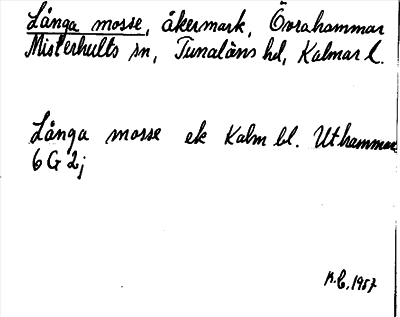 Långa mosse, åkermark, Övrahammar
Misterhults sn, Tunaläns hd, Kalmar l.
Långa mosse ek Kalm bl. Uthammar
6 G 2j
K.C. 1957